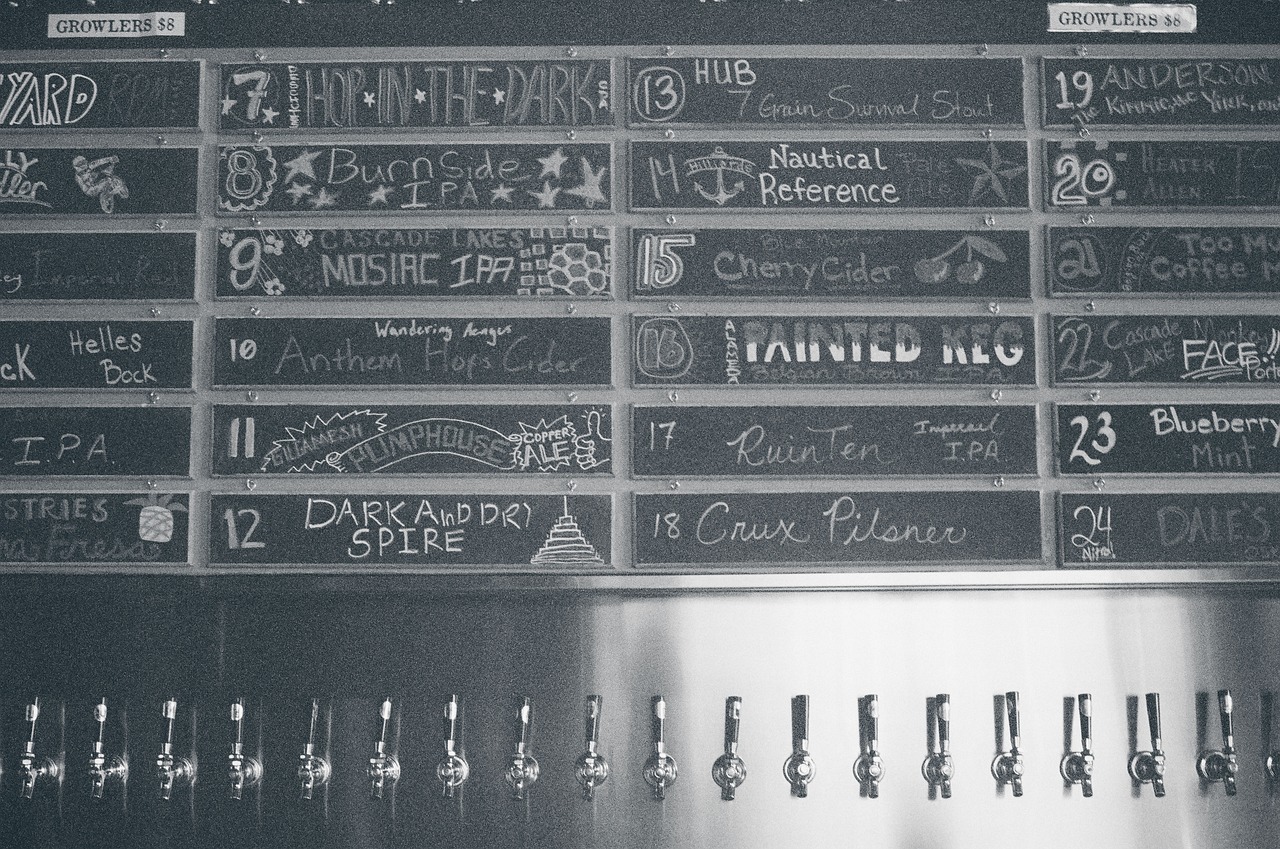 GROWLERS $8
GROWLERS $8
YARD
Helles
Bock
I.P.A.
STRIES
Fresa
7
HOP IN THE DARK
8
BurnSide
IPA
9
CASCADE LAKES
MOSIAC IPA
10
Wandering Aengus
Anthem Hops Cider
11
GILGAMESH
PUMPHOUSE
COPPER
ALE
12
DARK AnD DRY
SPIRE
13
HUB
7 Grain Survival Stout
14
Hilliards
Nautical
Reference
Pale
15
Blue Mountain
Cherry Cider
16
ALAMEDA
PAINTED KEG
Belgian Brown IPA
17
RuinTen
Imperial
I.P.A.
18
Crux Pilsner
19
ANDERSON
The Kimmie, the Yink, and
20
HEATER
ALLEN
21
TOO MU
Coffee
22
Cascade
LAKE
Monkey
FACE
Porte
23
Blueberry
Mint
24
Nitro!
DALE'S